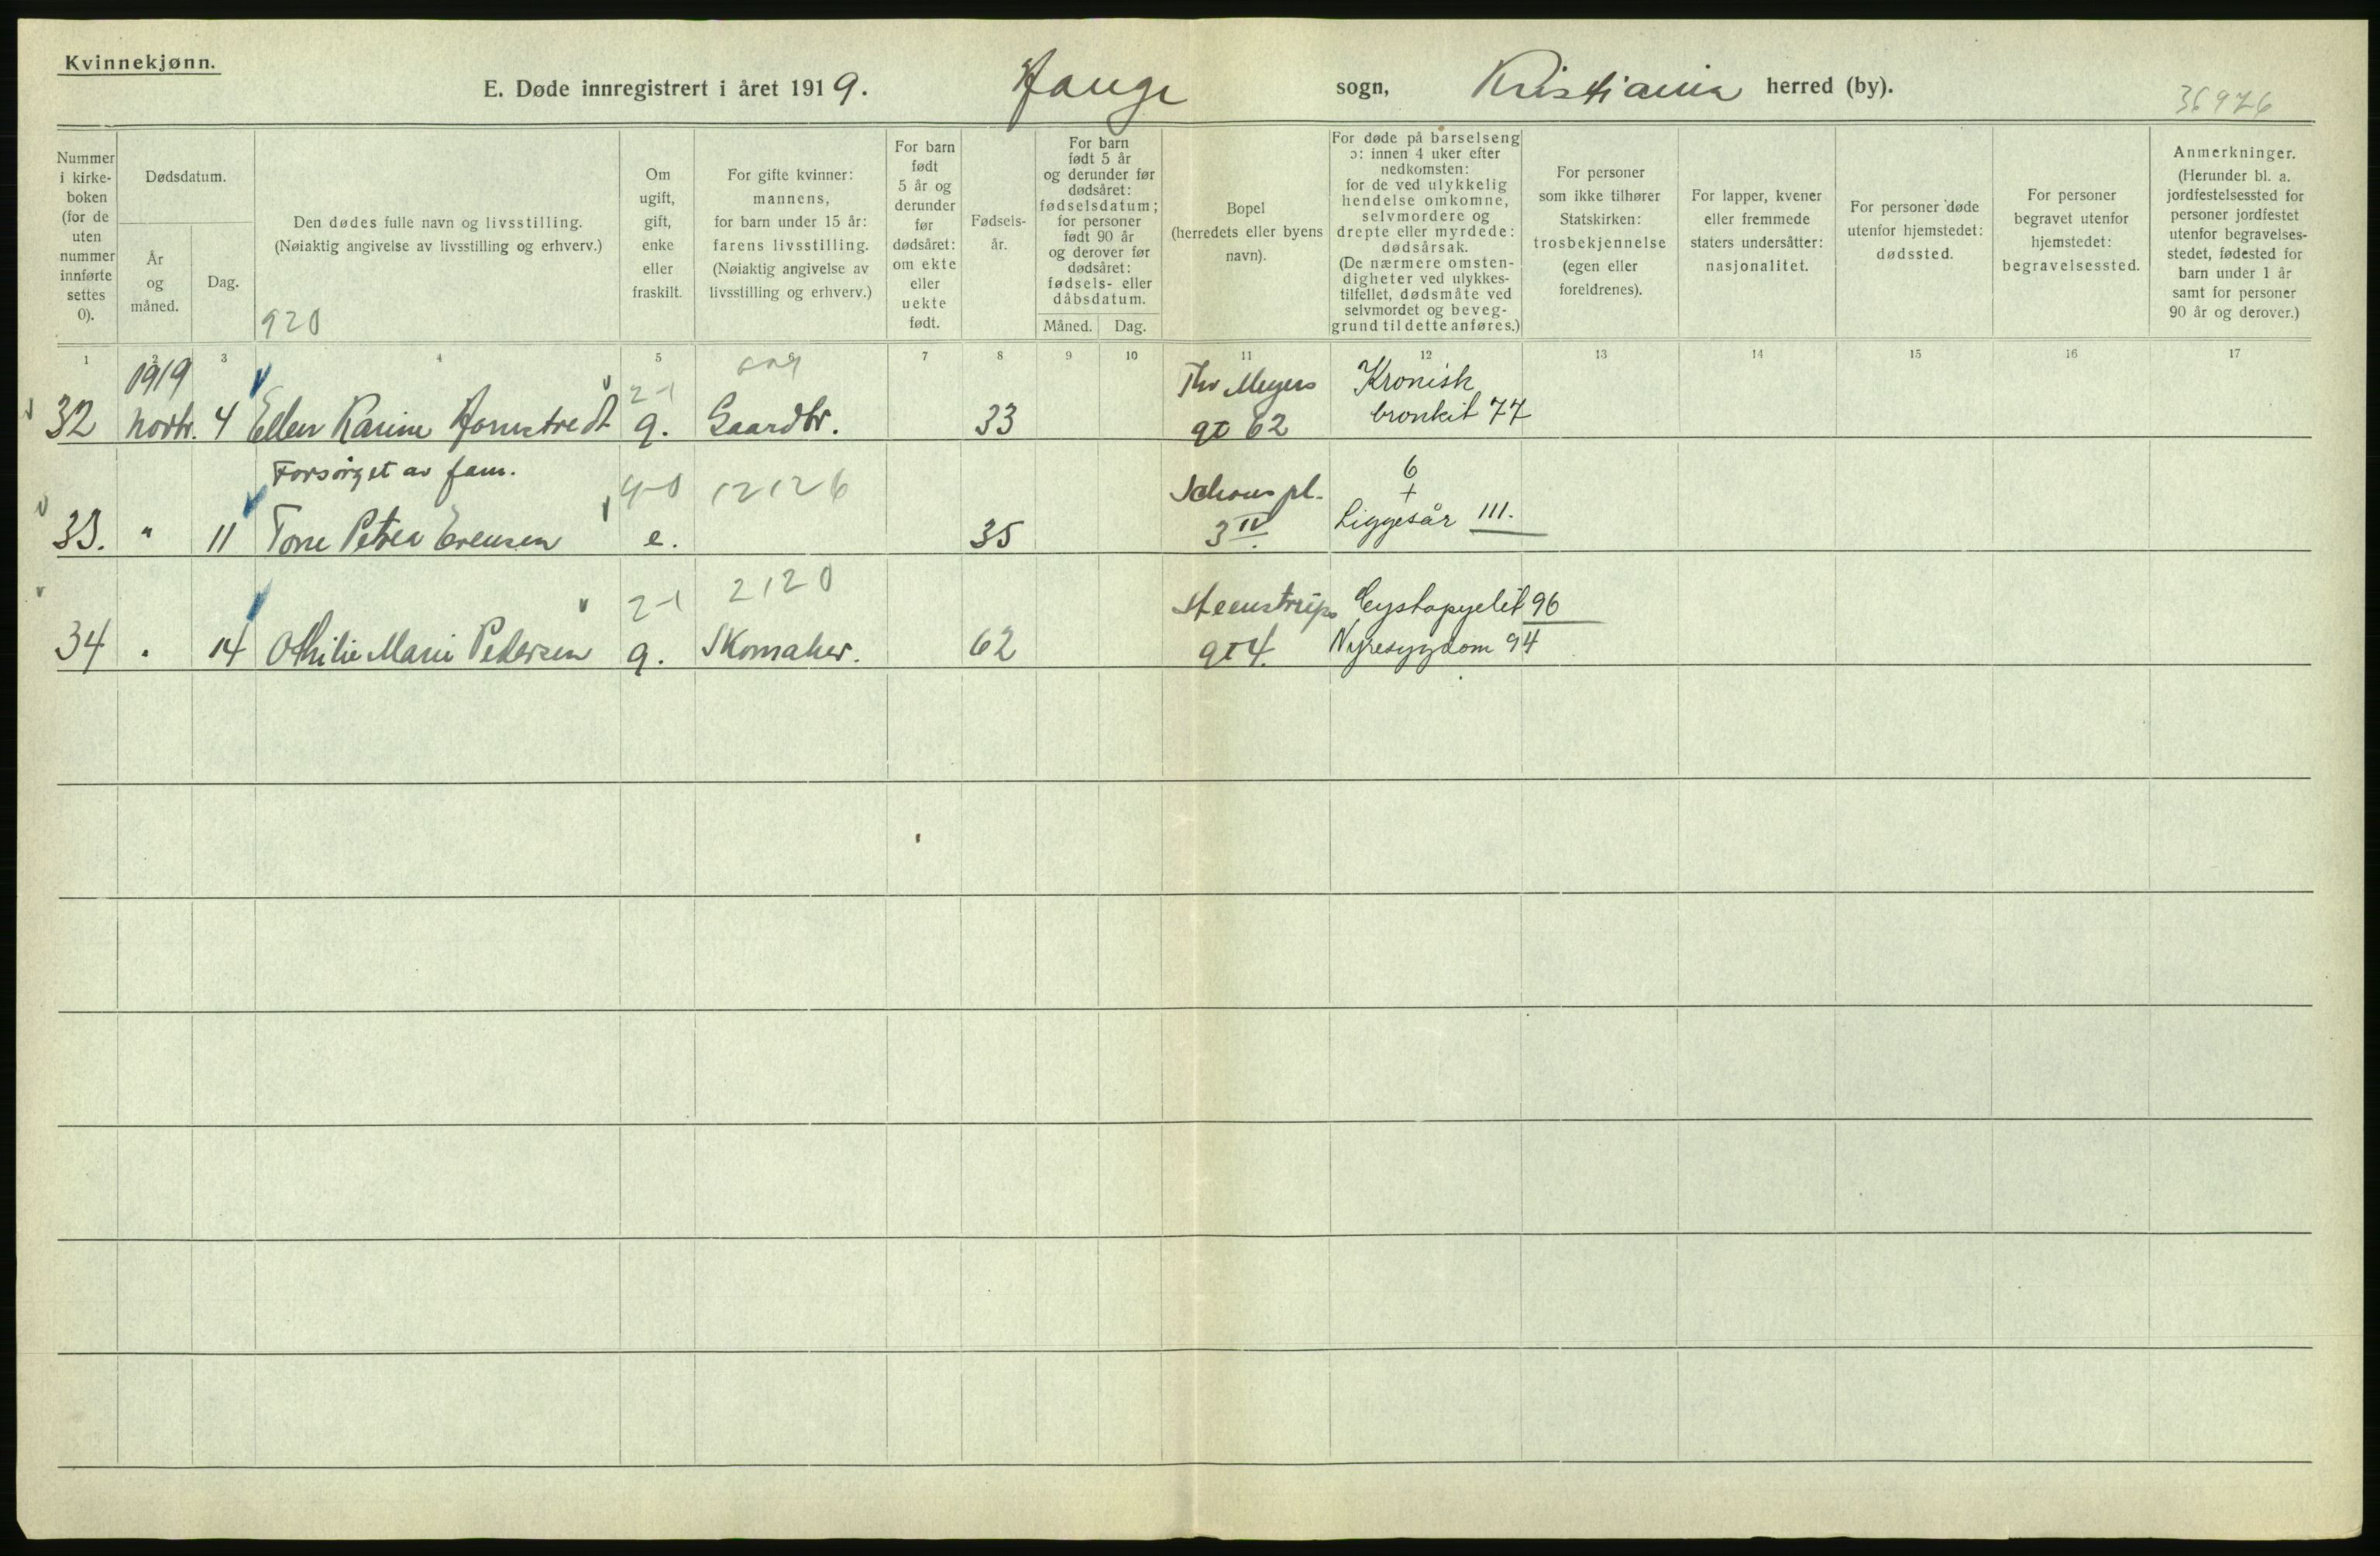 Kvinnekjønn.
E. Døde innregistrert i året 1919. Hauge sogn, Kristiania herred (by).
36926
Nummer i kirke-boken (for de uten nummer innførte settes 0).
Dødsdatum.
År og måned.
Dag.
Den dødes fulle navn og livsstilling.
(Nøiaktig angivelse av livsstilling og erhverv.)
920
Om ugift, gift, enke eller fraskilt.
For gifte kvinner: mannens, for barn under 15 år: farens livsstilling. (Nøiaktig angivelse av livsstilling og erhverv.)
For barn født 5 år og derunder før dødsåret: om ekte eller uekte født.
Fødsels-år.
For barn født 5 år og derunder før dødsåret: fødselsdatum; for personer født 90 år og derover før dødsåret: fødsels- eller dåbsdatum.
Måned. Dag.
Bopel (herredets eller byens navn).
For døde på barselseng ɔ: innen 4 uker efter nedkomsten: for de ved ulykkelig hendelse omkomne, selvmordere og drepte eller myrdede: dødsårsak. (De nærmere omsten-digheter ved ulykkes-tilfellet, dødsmåte ved selvmordet og beveg-grund til dette anføres.)
For personer som ikke tilhører Statskirken: trosbekjennelse (egen eller foreldrenes).
For lapper, kvener eller fremmede staters undersåtter: nasjonalitet.
For personer døde utenfor hjemstedet: dødssted.
For personer begravet utenfor hjemstedet: begravelsessted.
Anmerkninger. (Herunder bl. a. jordfestelsessted for personer jordfestet utenfor begravelses-stedet, fødested for barn under 1 år samt for personer 90 år og derover.)
1 2 3 4 5 6 7 8 9 10 11 12 13 14 15 16 17
1919 2-1 Thv Meyers Kronisk
32 novbr. 4 Ellen Karine g. Gaardbr. 33 gt 62 bronkit 77
Forsørget av fam. 4-0 12126 Schous pl. 6 +
33. " 11 Tone Petrea e. 35 3 IV. Liggesår 111.
2-1 2120 Steenstrups Cystopyelit 96
34 " 14 Othilie Marie Pedersen g. Skomaker. 62 gt 4. Nyresygdom 94